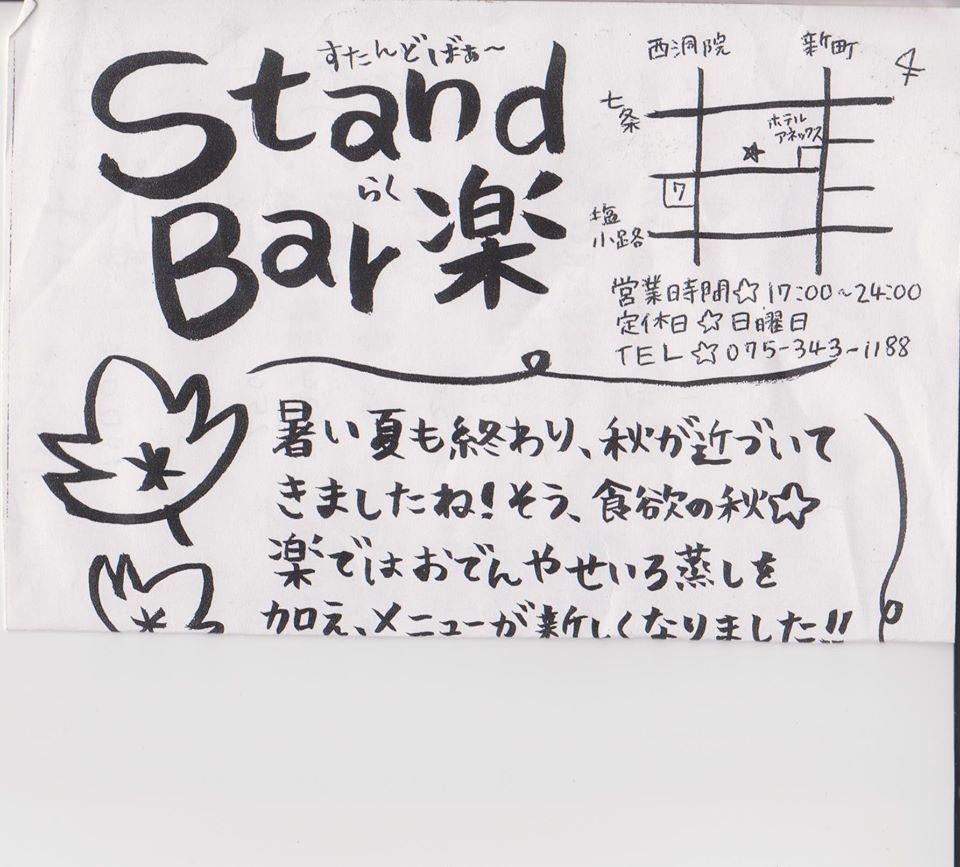 すたんどばぁ～
Stand
らく
Bar楽
西洞院
新町
七条
ホテル
アネックス
7
塩
小路
営業時間☆17:00～24:00
定休日☆日曜日
TEL☆075-343-1188
暑い夏も終わり、秋が近づいて
きましたね!そう、食欲の秋☆
楽ではおでんやせいろ蒸しを
加え、メニューが新しくなりました!!